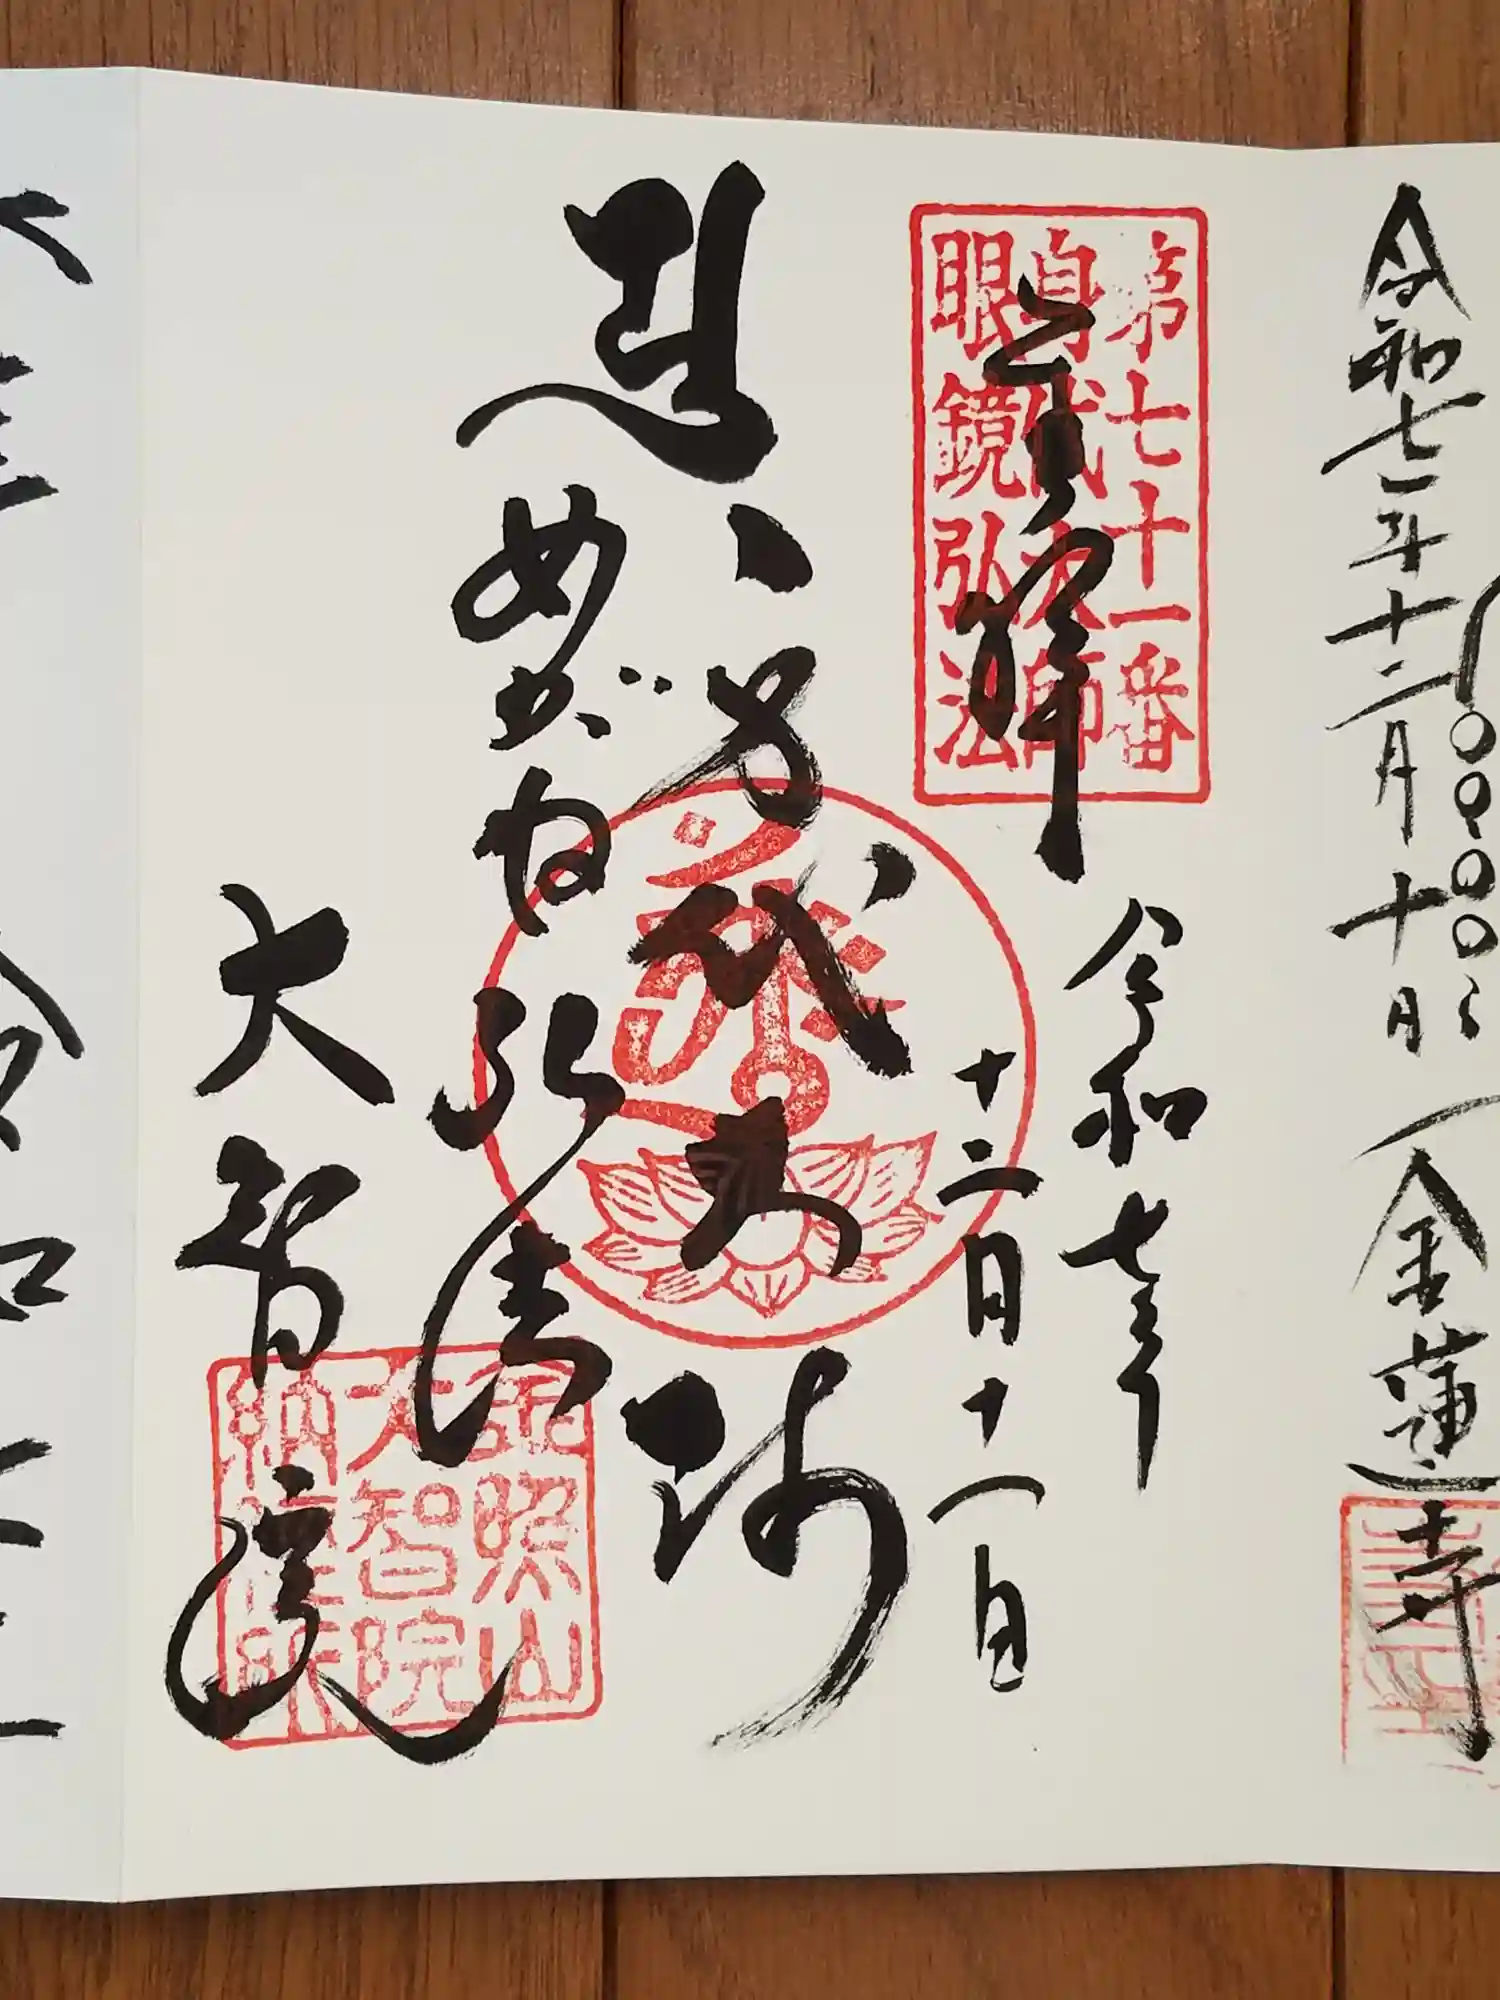 令和七年十二月十日
金蓮寺
第七十一番
身代大師
眼鏡弘法
奉拝
令和七年
十二月十一日
身代大師
めがね弘法
大智院
金照山
大智院
納経所